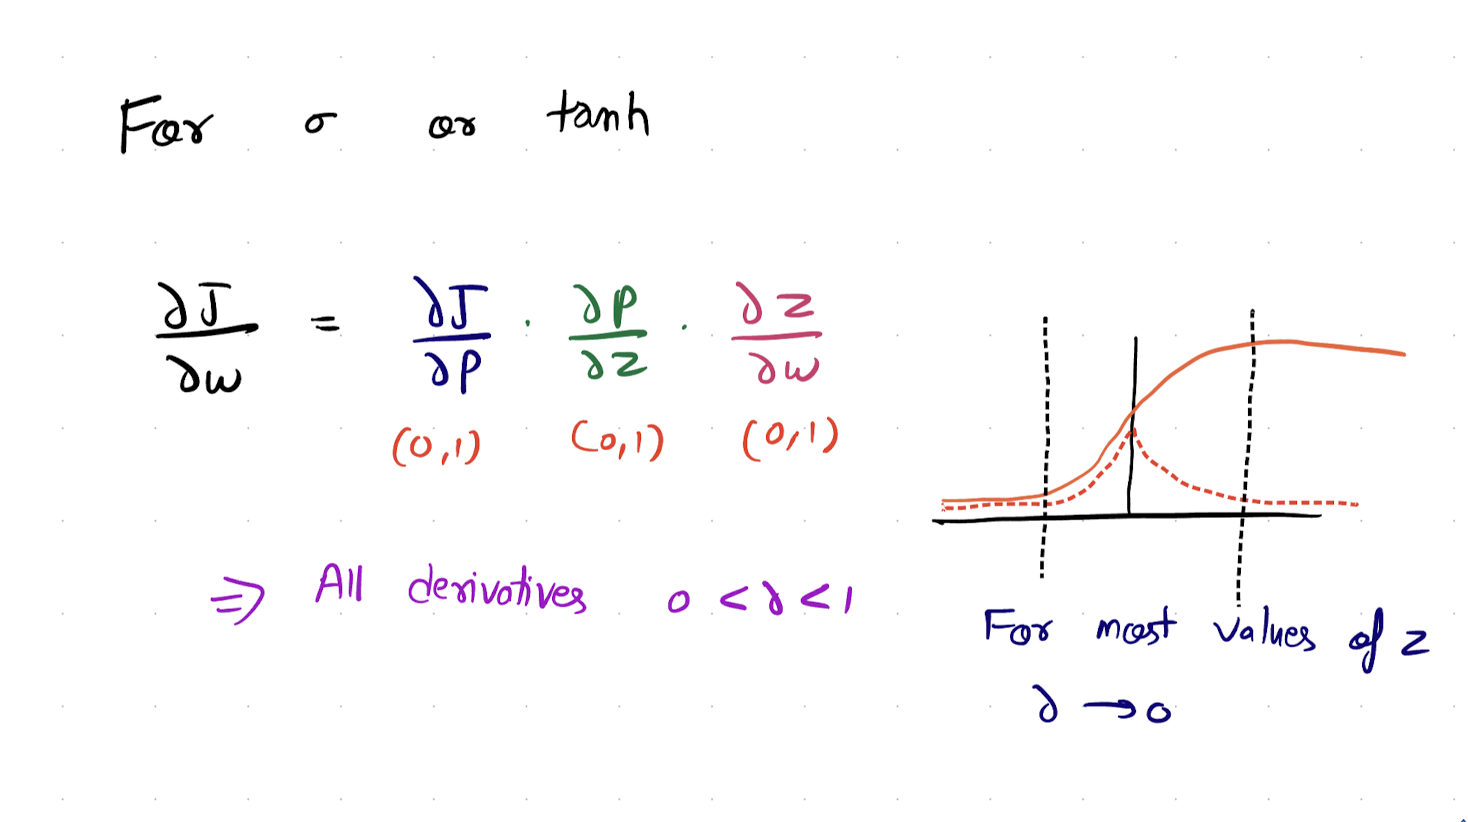 For σ or tanh
∂J/∂w = ∂J/∂P · ∂P/∂z · ∂z/∂w
(0,1) (0,1) (0,1)
⇒ All derivatives 0 < ∂ < 1
For most values of z
∂ → 0